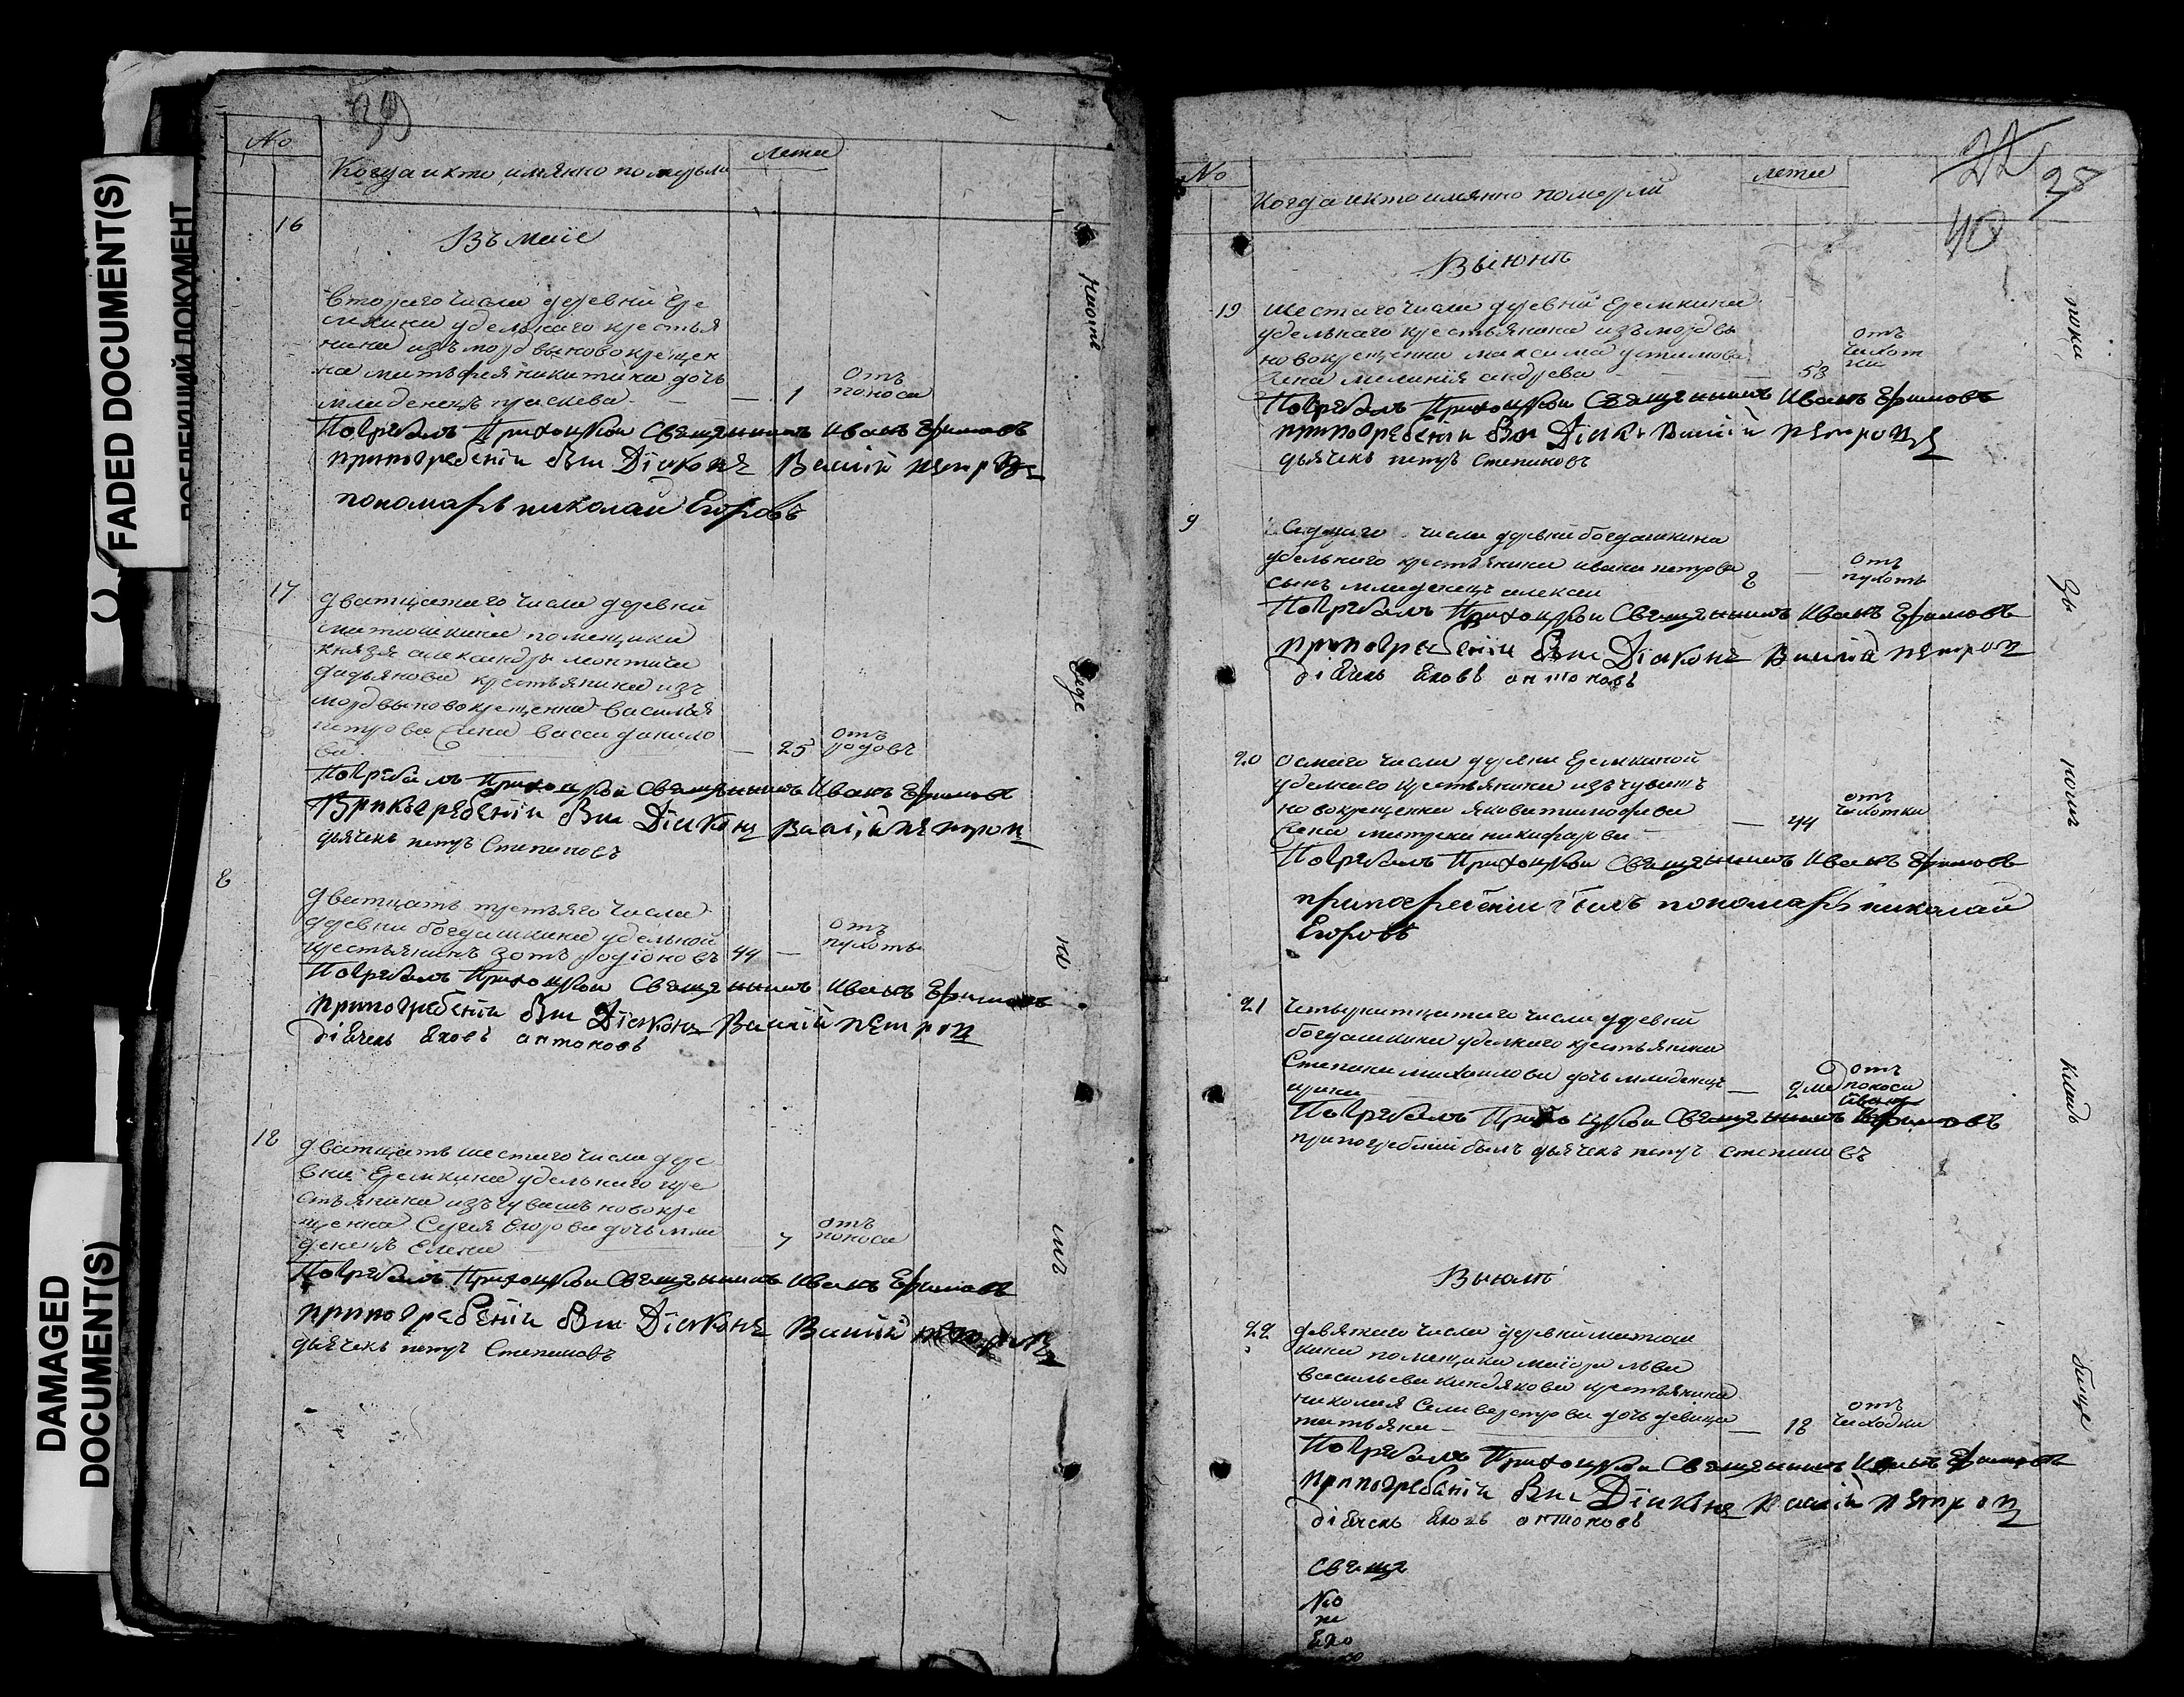 FADED DOCUMENT(S)
DAMAGED
DOCUMENT(S)
39
No
Когда и кто имянно померли
лета
16
Въ маіе
Втораго числа деревни Ере
мкина удельнаго крестья
нина изъ мордвы новокрещен
на дочь
младенецъ праскева
1
отъ
поноса
Погребалъ Приходской Священникъ Иванъ Ефимовъ
при погребеніи был Діаконъ Василій Петровъ
пономарь николай Егоровъ
17
дватцатаго числа деревни
матюшкина помещика
князя александра
крестьянина изъ
мордвы новокрещенна василья
петрова жена васса данило
ва
25
отъ
родовъ
Погребалъ Приходской Священникъ Иванъ Ефимовъ
При погребеніи был Діаконъ Василій Петров
дьячекъ петръ Степановъ
8
дватцать третьяго числа
деревни богдашкина удельной
крестьянинъ зотъ родіоновъ
44
отъ
пухоты
Погребалъ Приходской Священникъ Иванъ Ефимовъ
при погребеніи был Діаконъ Василій Петров
діячекъ Яковъ антоновъ
18
дватцать шестаго числа дере
вни Еремкина удельнаго кре
стьянина изъ чувашъ новокре
щенна Сергея Егорова дочь мла
денецъ Елена
7
отъ
поноса
Погребалъ Приходской Священникъ Иванъ Ефимовъ
при погребеніи был Діаконъ Василій Петровъ
дьячекъ петръ Степановъ
No
Когда и кто имянно померли
лета
22
40
Въ іюне
19
шестаго числа деревни Еремкина
удельнаго крестьянина изъ мордвы
новокрещенна максима устимова
жена меланія андреева
53
отъ
чахот
ки
Погребалъ Приходской Священникъ Иванъ Ефимовъ
при погребеніи был Діаконъ Василій Петровъ
дьячекъ петръ Степановъ
9
Седмаго числа деревни богдашкина
удельнаго крестьянина ивана петрова
сынъ младенецъ алексей
8
отъ
пухоты
Погребалъ Приходской Священникъ Иванъ Ефимовъ
при погребеніи был Діаконъ Василій Петров
діячекъ Яковъ антоновъ
20
осмаго числа деревни Еремкиной
удельнаго крестьянина изъ чувашъ
новокрещенна якова тимофеева
жена матрена никифорова
44
отъ
чахотки
Погребалъ Приходской Священникъ Иванъ Ефимовъ
при погребении былъ пономарь николай
Егоровъ
21
Четырнатцатаго числа деревни
богдашкина удельнаго крестьянина
Степана михайлова дочь младенецъ
ирина
2 ме
отъ
поноса
Иванъ
Погребалъ Приходской Священникъ Ефимовъ
при погребеніи былъ дьячекъ петръ степановъ
Въ іюле
22
девятаго числа деревни матюш
кина помещика маіора льва
васильева киндякова крестьянина
николая Селиверстрова дочь девица
татьяна
18
отъ
чаходки
Погребалъ Приходской Священникъ Иванъ Ефимовъ
при погребеніи был Діаконъ Василій Петров
діячекъ Яковъ антоновъ
Свяще